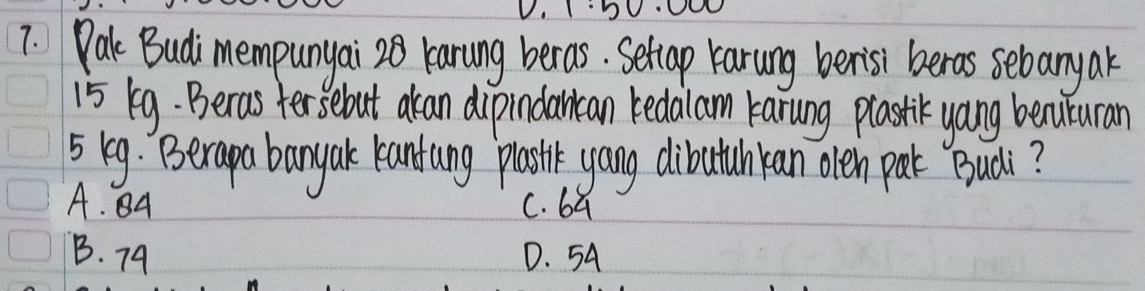 D. 1:50.000
7. Pak Budi mempunyai 28 karung beras. Setiap karung berisi beras sebanyak
15 kg. Beras tersebut akan dipindahkan kedalam karung plastik yang berukuran
5 kg. Berapa banyak kantung plastik yang dibutuhkan oleh pak Budi?
A. 84 C. 64
B. 74 D. 54